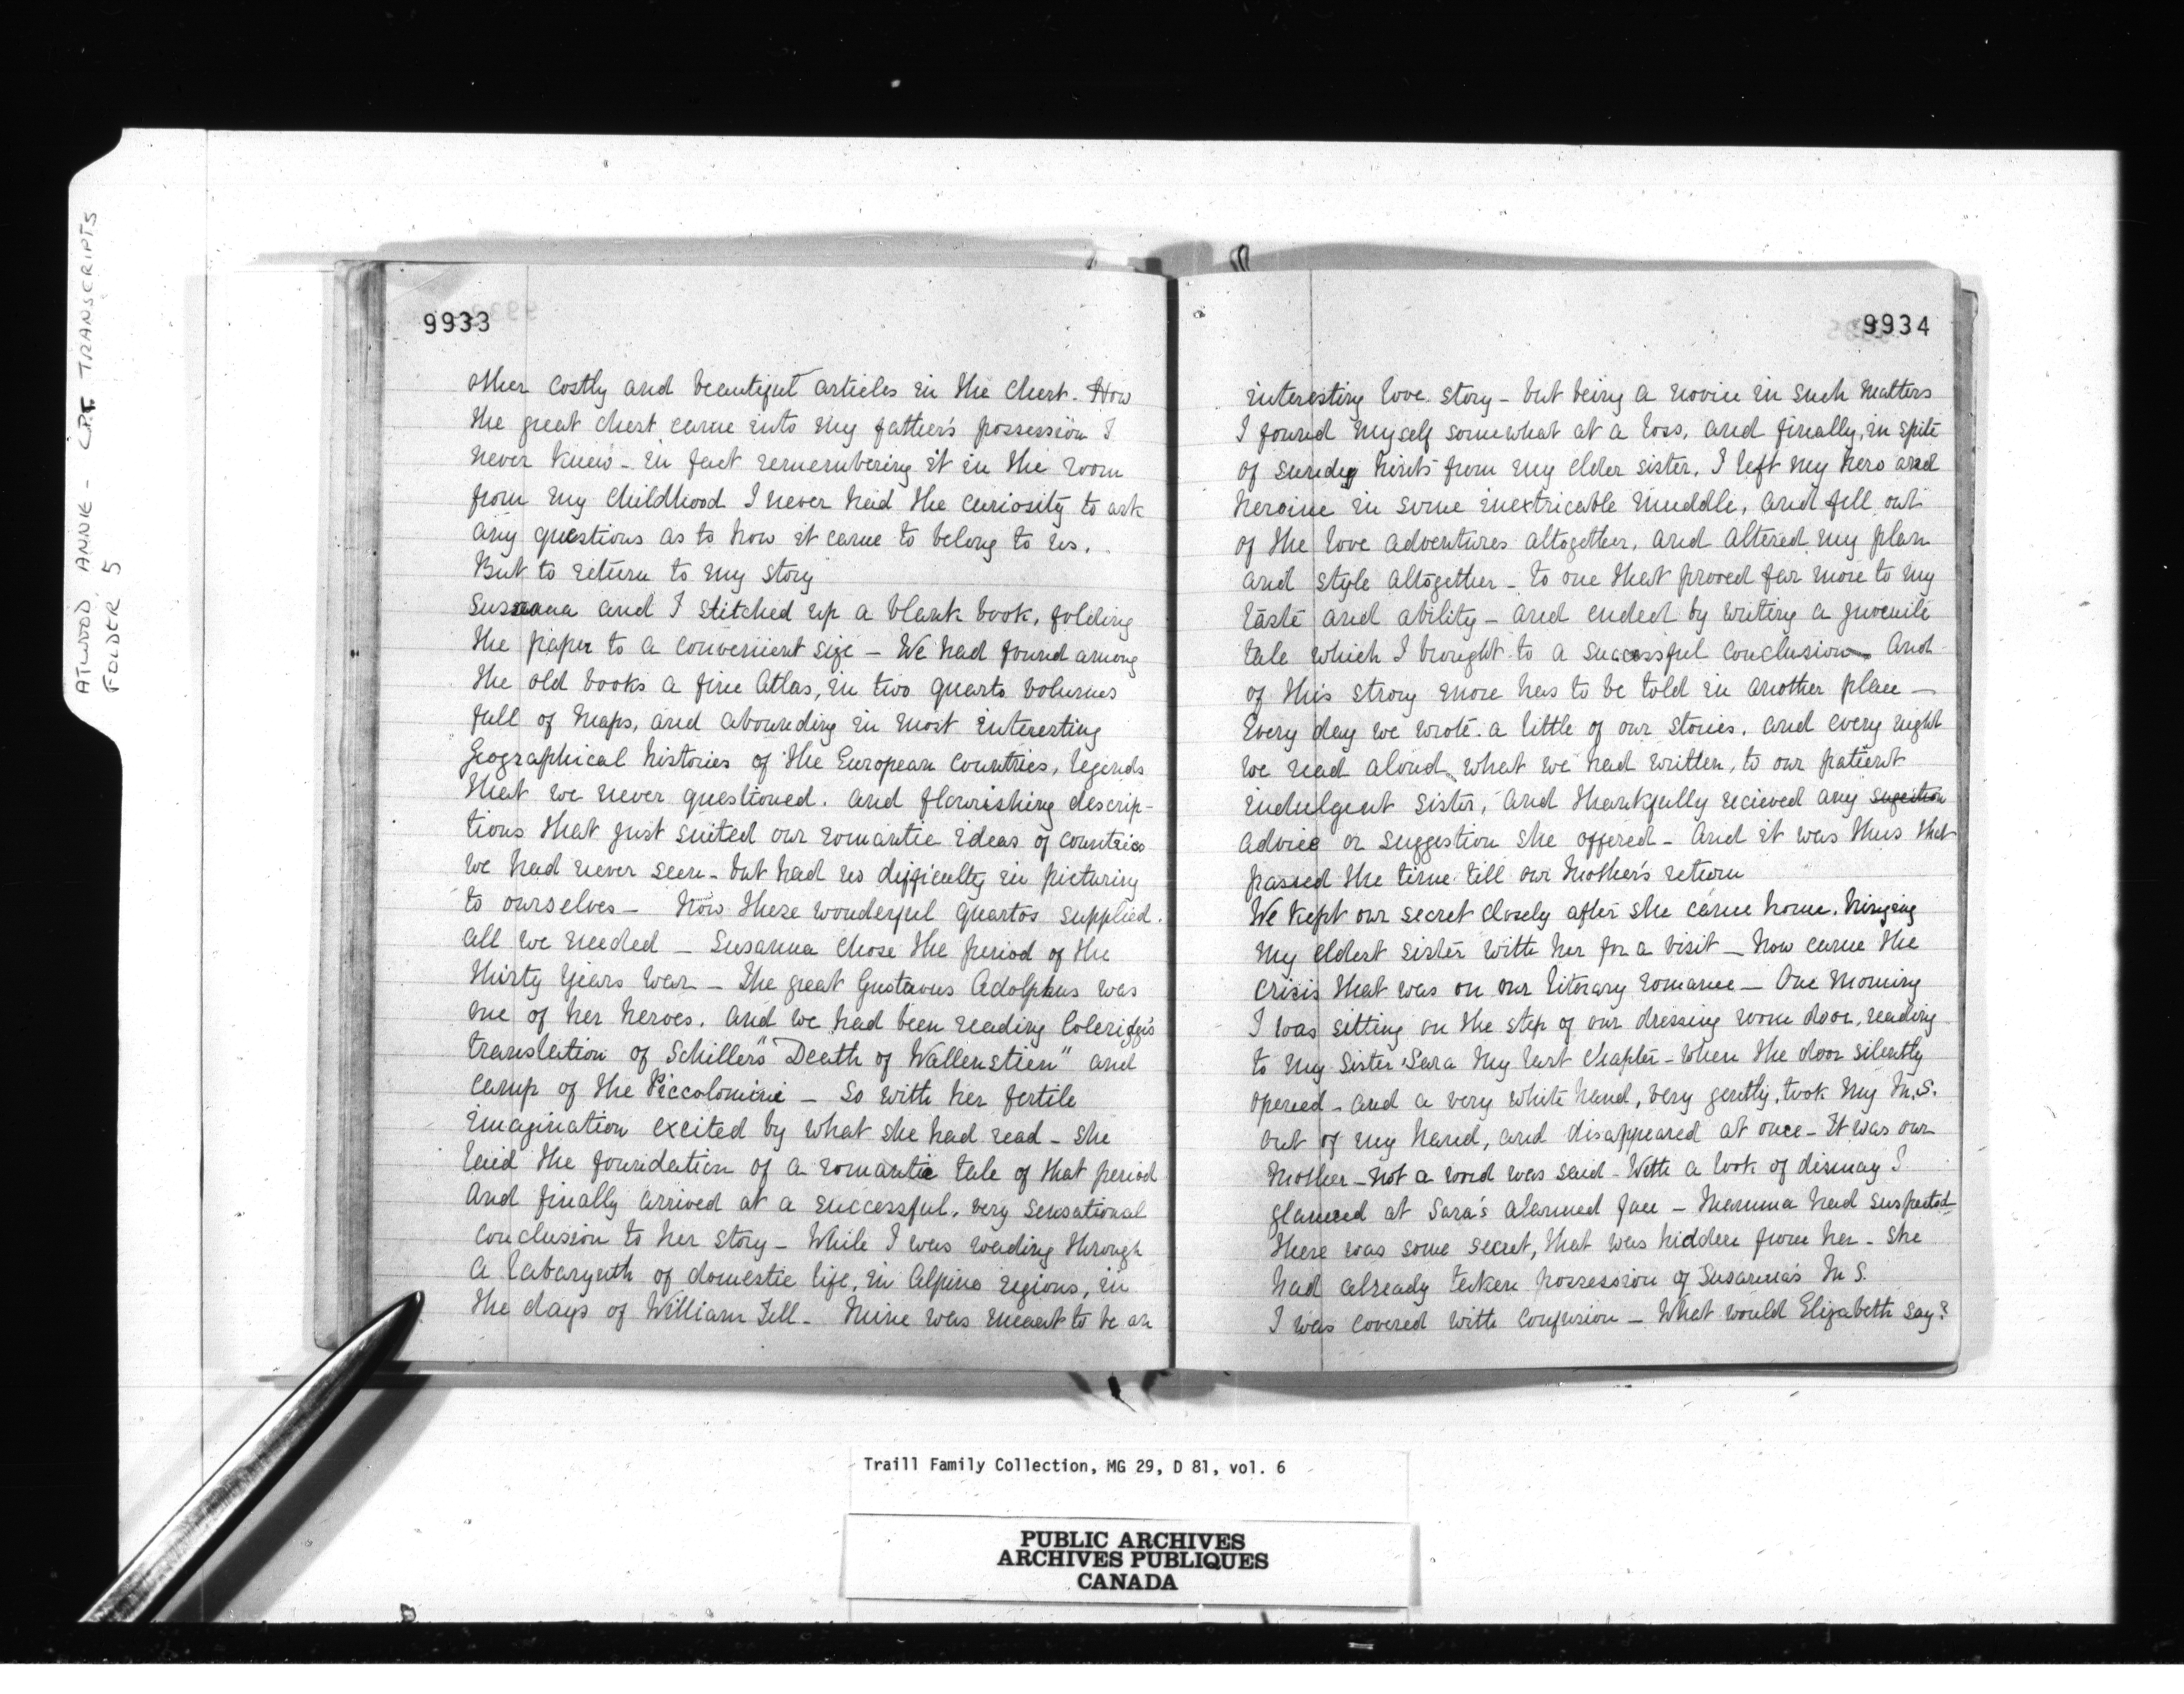 ATWOOD, ANNIE - C.P.T. TRANSCRIPTS
FOLDER 5
9933
other costly and beautiful articles in the chest. How
the great chest came into my father's possession I
never knew - in fact remembering it in the room
from my childhood I never had the curiosity to ask
any questions as to how it came to belong to us.
But to return to my story
Susanna and I stitched up a blank book, folding
the paper to a convenient size - We had found among
the old books a fine Atlas, in two quarto volumes
full of maps, and abounding in most interesting
Geographical histories of the European countries, legends
that we never questioned. and flourishing descrip-
tions that just suited our romantic ideas of countries
we had never seen - but had no difficulty in picturing
to ourselves - Now these wonderful quartos supplied
all we needed - Susanna chose the period of the
thirty years war - The great Gustavus Adolphus was
one of her heroes. And we had been reading Coleridge's
translation of Schiller's "Death of Wallenstien" and
camp of the Piccolomini - So with her fertile
imagination excited by what she had read - she
laid the foundation of a romantic tale of that period
And finally arrived at a successful, very sensational
conclusion to her story - While I was wading through
a labarynth of domestic life, in Alpine regions, in
the days of William Tell - Mine was meant to be an
9934
interesting love story - but being a novice in such matters
I found myself somewhat at a loss, and finally, in spite
of sundry hints from my elder sister, I left my hero and
heroine in some inextricable muddle, and fell out
of the love adventures altogether, and altered my plan
and style altogether - to one that proved far more to my
taste and ability - and ended by writing a juvenile
tale which I brought to a successful conclusion. And
of this strory more has to be told in another place -
Every day we wrote a little of our stories, and every night
we read aloud what we had written, to our patient
indulgent sister, and thankfully recieved any sugestion
advice or suggestion she offered - And it was thus that
passed the time till our mother's return
We kept our secret closely after she came home, bringing
my eldest sister with her for a visit - Now came the
crisis that was on our literary romance - One morning
I was sitting on the step of our dressing room door, reading
to my sister Sara my last chapter - When the door silently
opened - and a very white hand, very gently, took my M.S.
out of my hand, and disappeared at once - It was our
Mother - Not a word was said - With a look of dismay I
glanced at Sara's alarmed face - Mamma had suspected
there was some secret, that was hidden from her - she
had already taken possession of Susanna's M S.
I was covered with confusion - What would Elizabeth say?
Traill Family Collection, MG 29, D 81, vol. 6
PUBLIC ARCHIVES
ARCHIVES PUBLIQUES
CANADA